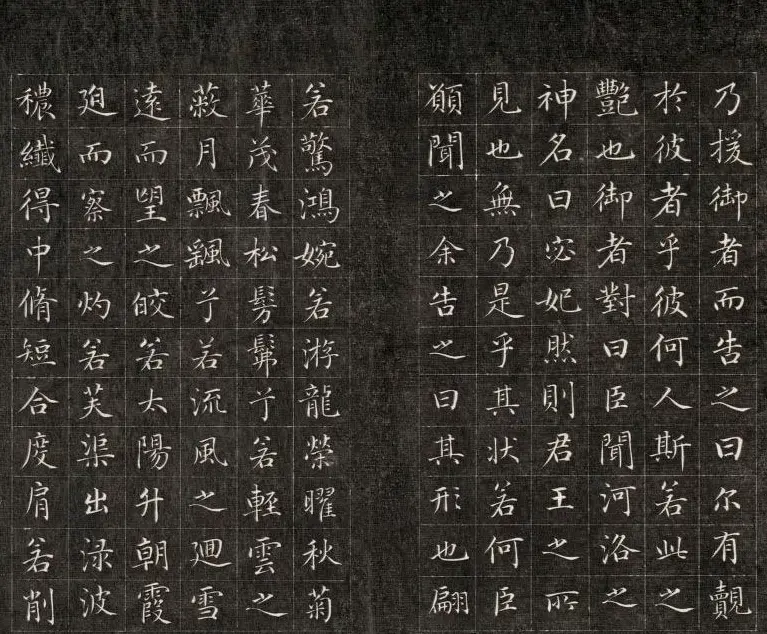 乃援御者而告之曰尔有覿
於彼者乎彼何人斯若此之
艷也御者對曰臣聞河洛之
神名曰宓妃然則君王之所
見也無乃是乎其狀若何臣
願聞之余告之曰其形也翩
若驚鴻婉若游龍榮曜秋菊
華茂春松髣髴兮若輕雲之
蔽月飄颻兮若流風之迴雪
遠而望之皎若太陽升朝霞
迫而察之灼若芙渠出淥波
穠纖得中脩短合度肩若削